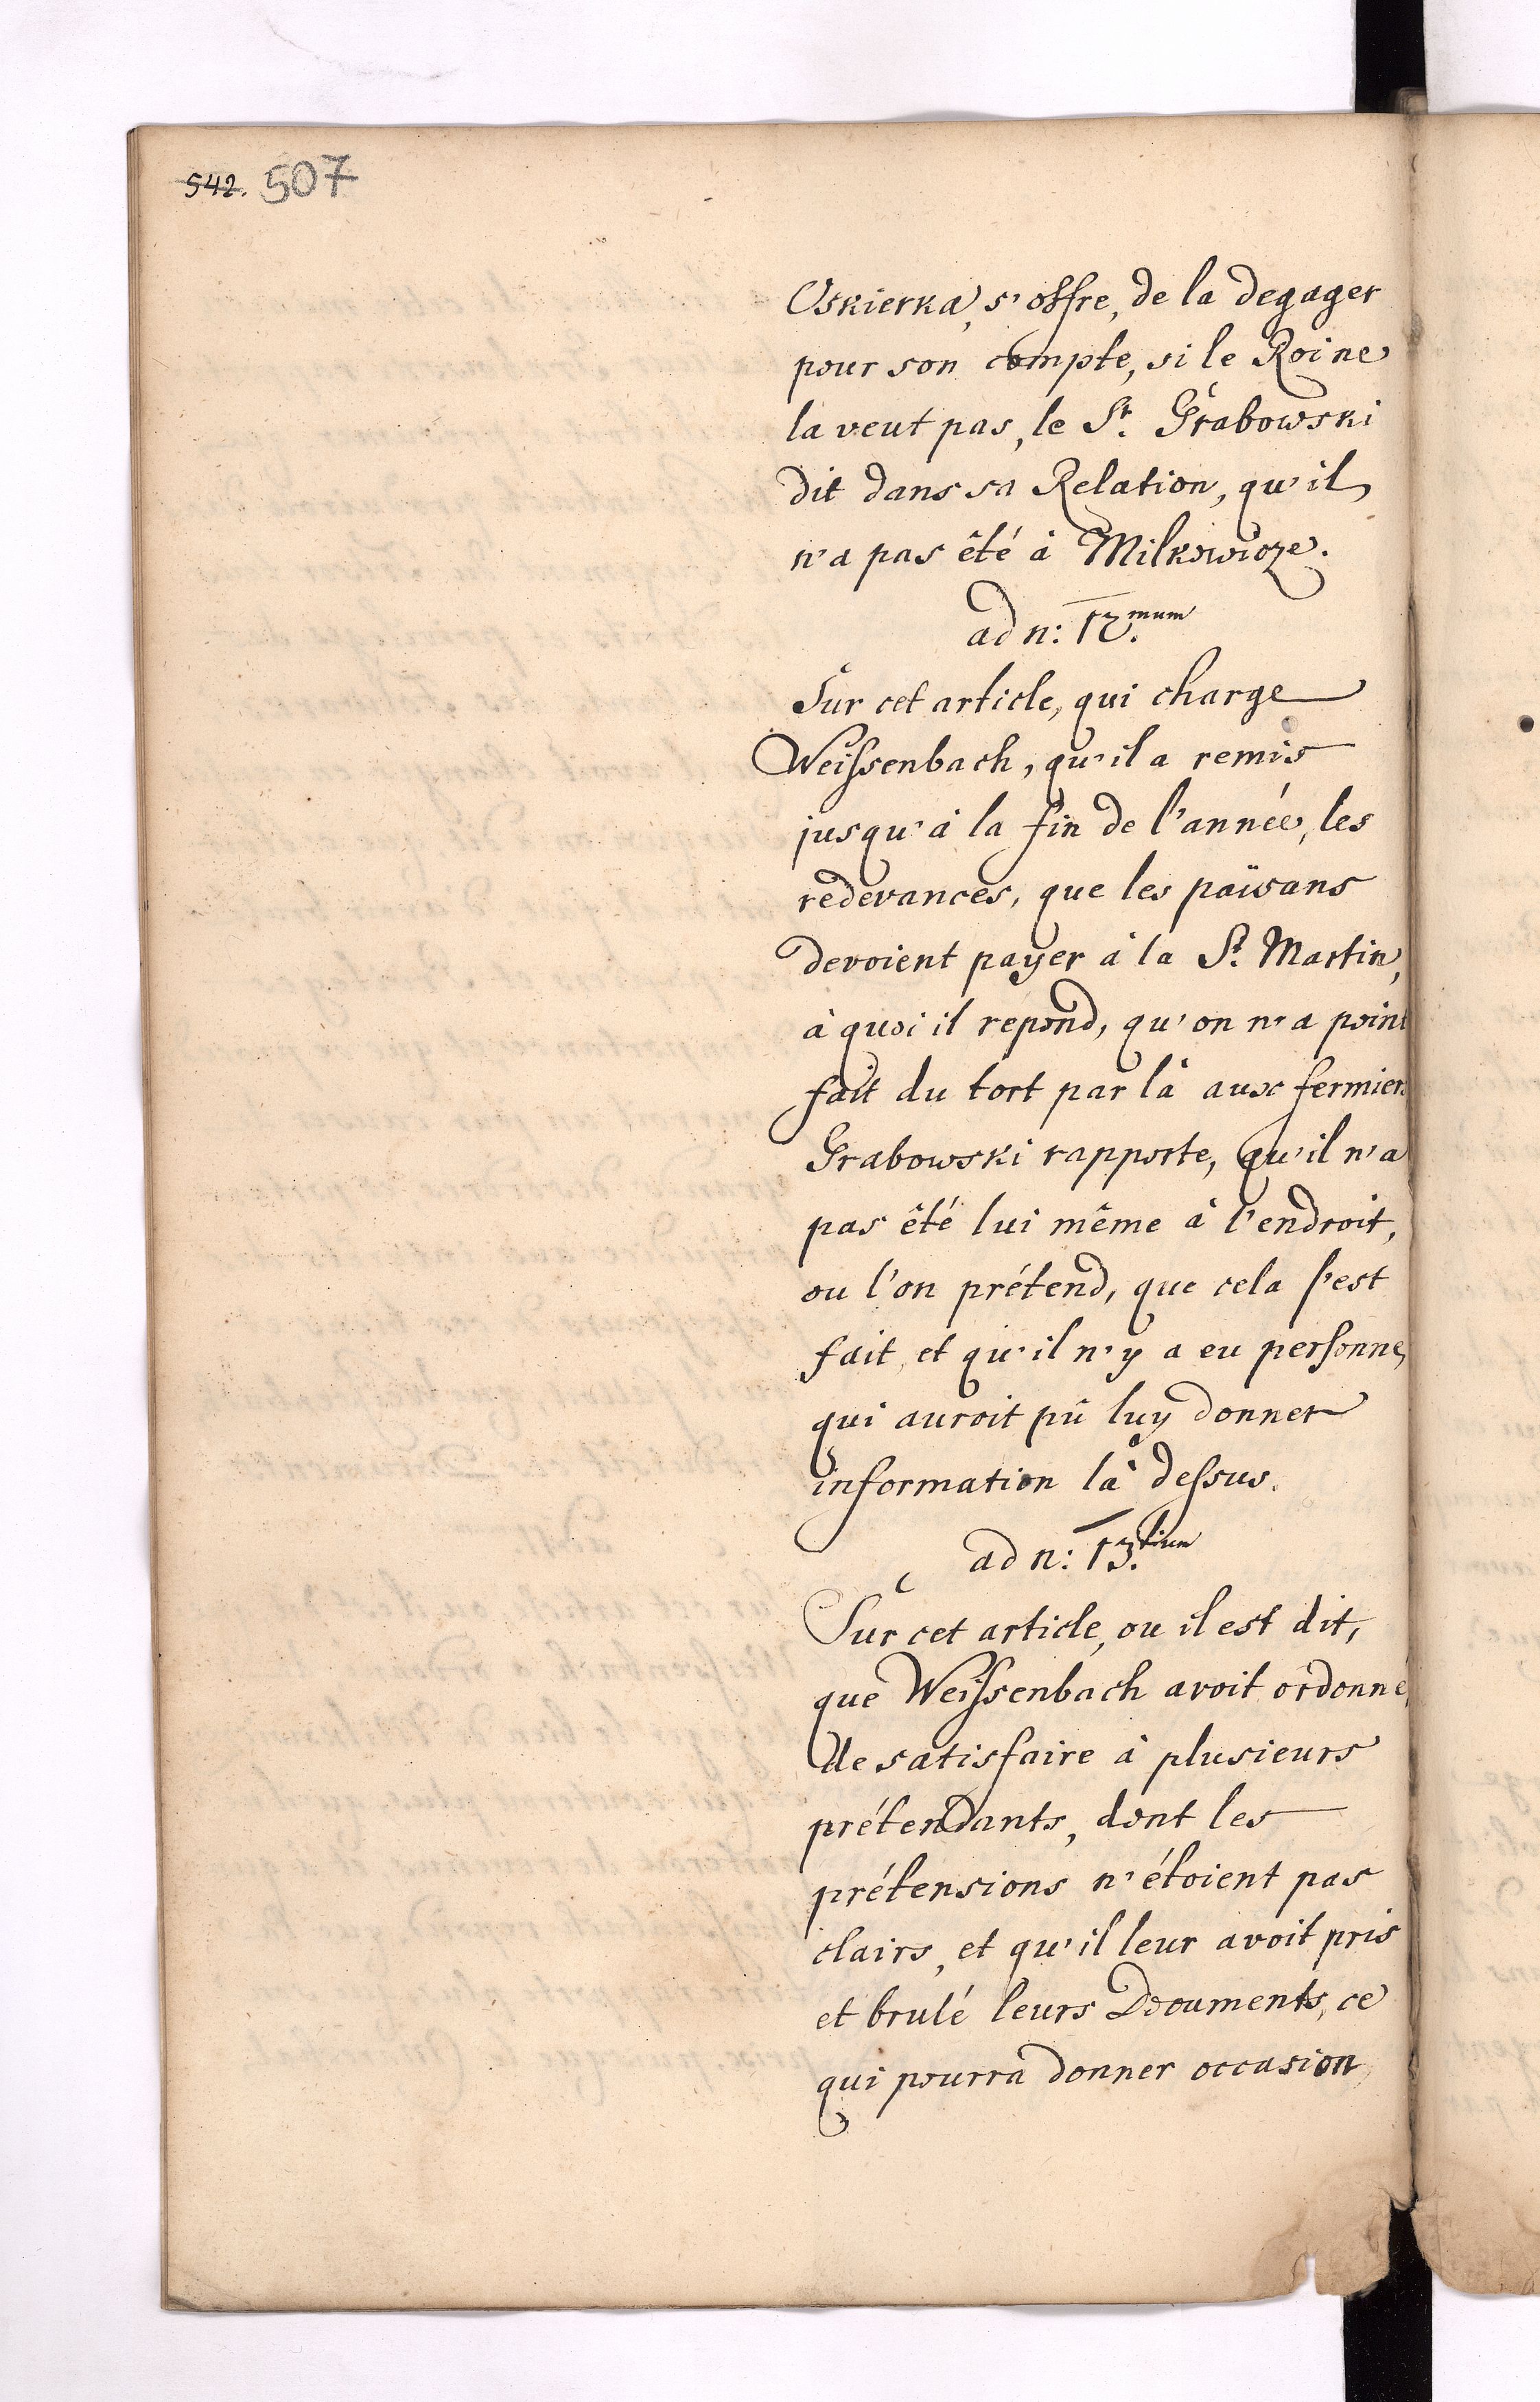 542. 507
Oskierka, s'offre, de la degager
pour son compte, si le Roi ne
la veut pas, le Sr. Grabowski
dit dans sa Relation, qu'il
n'a pas êté à Milkowicze.
ad n: 12.mum
Sur cet article, qui charge
Weissenbach, qu'il a remis
jusqu'à la fin de l'année, les
redevances, que les païsans
devoient payer à la St. Martin,
à quoi il repond, qu'on n'a point
fait du tort par là aux fermiers
Grabowski rapporte, qu'il n'a
pas êté lui même à l'endroit,
ou l'on prétend, que cela s'est
fait, et qu'il n'y a eu personne,
qui auroit pû luy donner
information là dessus.
ad n: 13.tium
Sur cet article, ou il est dit,
que Weissenbach avoit ordonné,
de satisfaire à plusieurs
prétendants, dont les
prétensions n'étoient pas
clairs, et qu'il leur avoit pris
et brulé leurs Documents, ce
qui pourra donner occasion